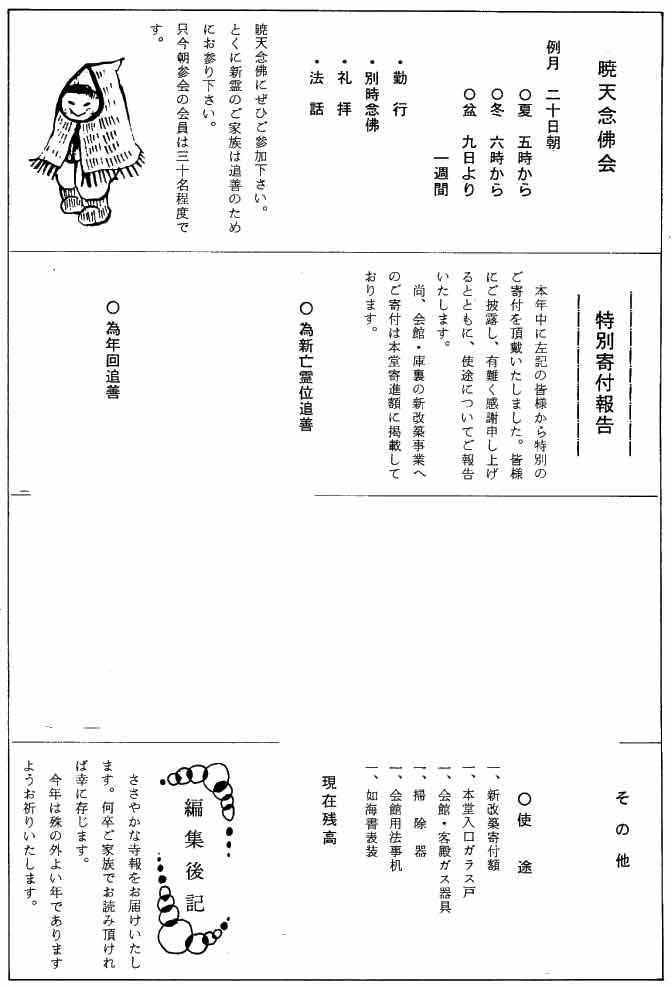 暁天念佛会
例月　二十日朝
○夏　五時から
○冬　六時から
○盆　九日より
一週間
・勤　行
・別時念佛
・礼　拝
・法　話
暁天念佛にぜひご参加下さい。
とくに新霊のご家族は追善のため
にお参り下さい。
只今朝参会の会員は三十名程度で
す。
特別寄付報告
本年中に左記の皆様から特別の
ご寄付を頂戴いたしました。皆様
にご披露し、有難く感謝申し上げ
るとともに、使途についてご報告
いたします。
尚、会館・庫裏の新改築事業へ
のご寄付は本堂寄進額に掲載して
おります。
○為新亡霊位追善
○為年回追善
その他
○使　途
一、新改築寄付額
一、本堂入口ガラス戸
一、会館・客殿ガス器具
一、掃除器
一、会館用法事机
一、如海書表装
現在残高
編集後記
ささやかな寺報をお届けいたし
ます。何卒ご家族でお読み頂けれ
ば幸に存じます。
今年は殊の外よい年であります
ようお祈りいたします。